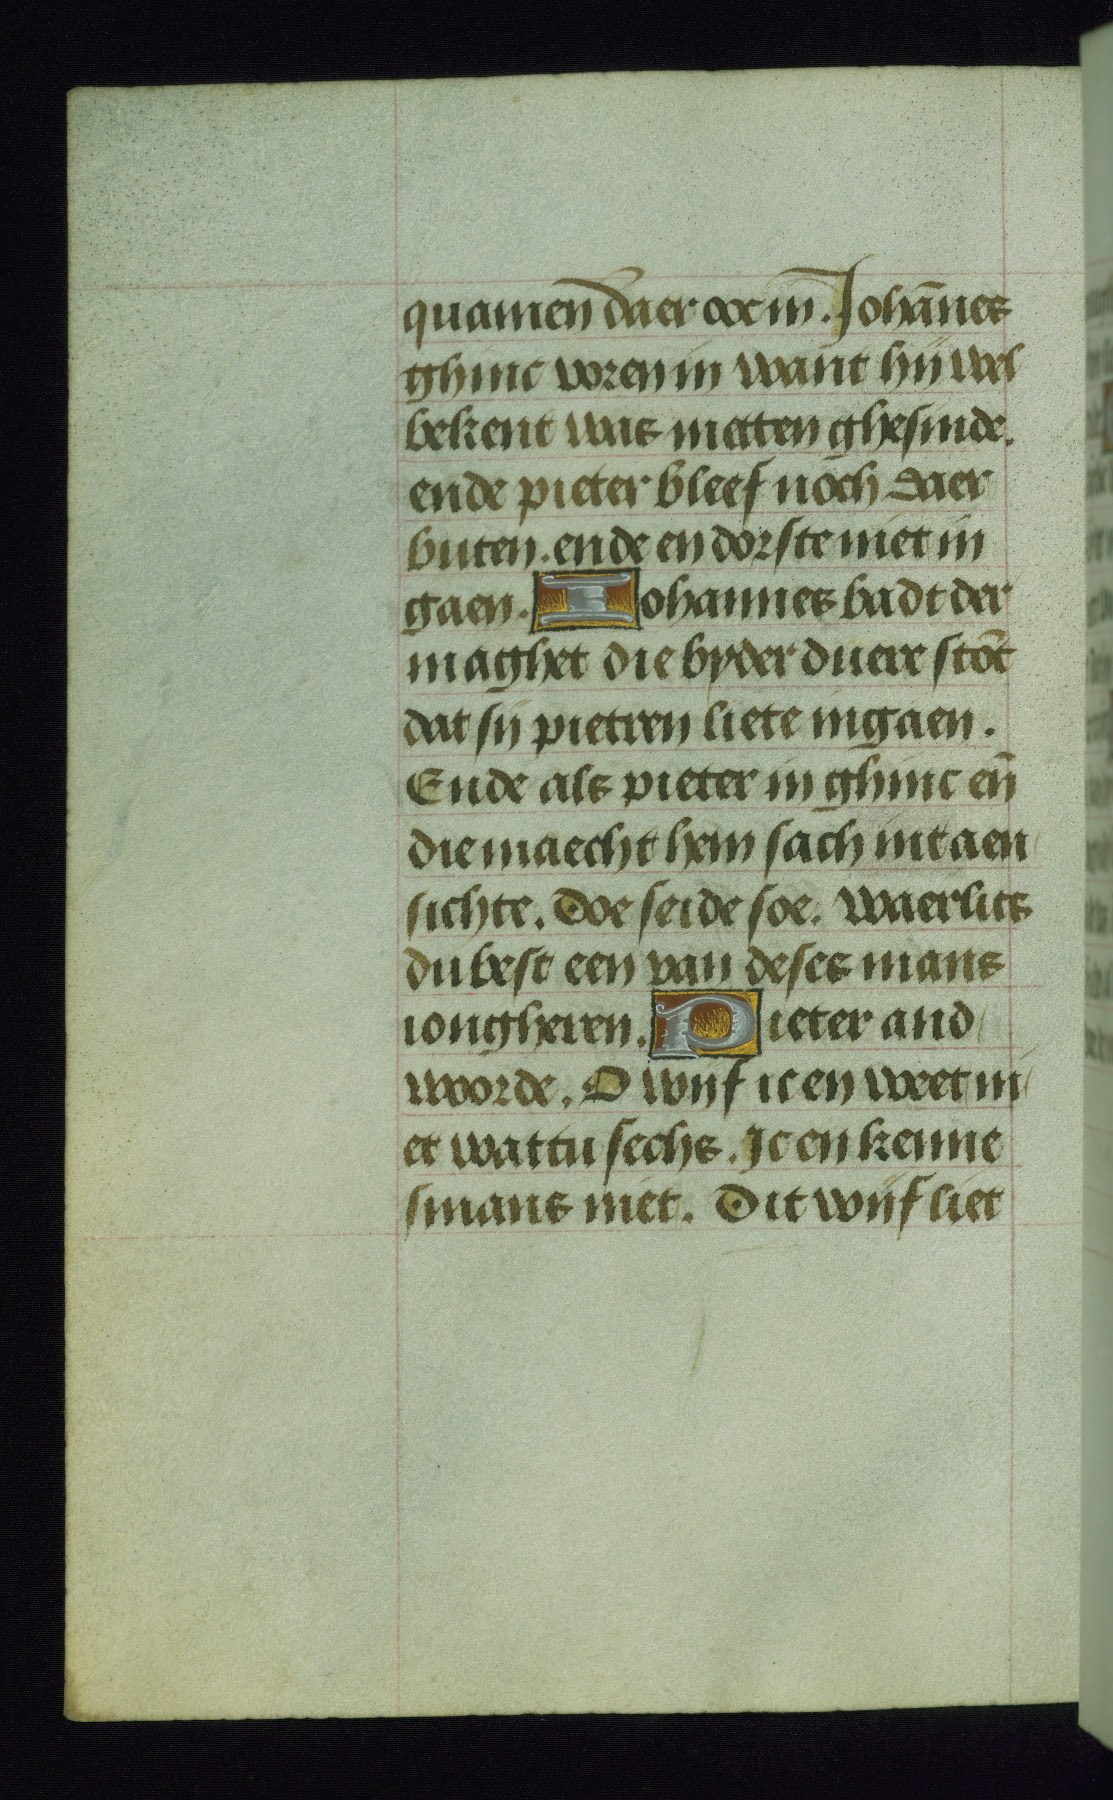 quamen daer oocin. Johānes
ghinc voren in want hij wel
bekent was metten ghesinde.
ende pieter bleef noch daer
buten. ende en dorste niet in
gaen. Johannes badt der
maghet die byder duere stōt
dat sij pietren liete ingaen.
Ende als pieter in ghinc eñ
die maecht hem sach int aen
sichte. Doe seide soe. Waerlics
du best een van deses mans
iongheren. Pieter and
worde. O wijf ic en weet ni
et wattu sechs. Ic en kenne
smans niet. Dit wijf liet